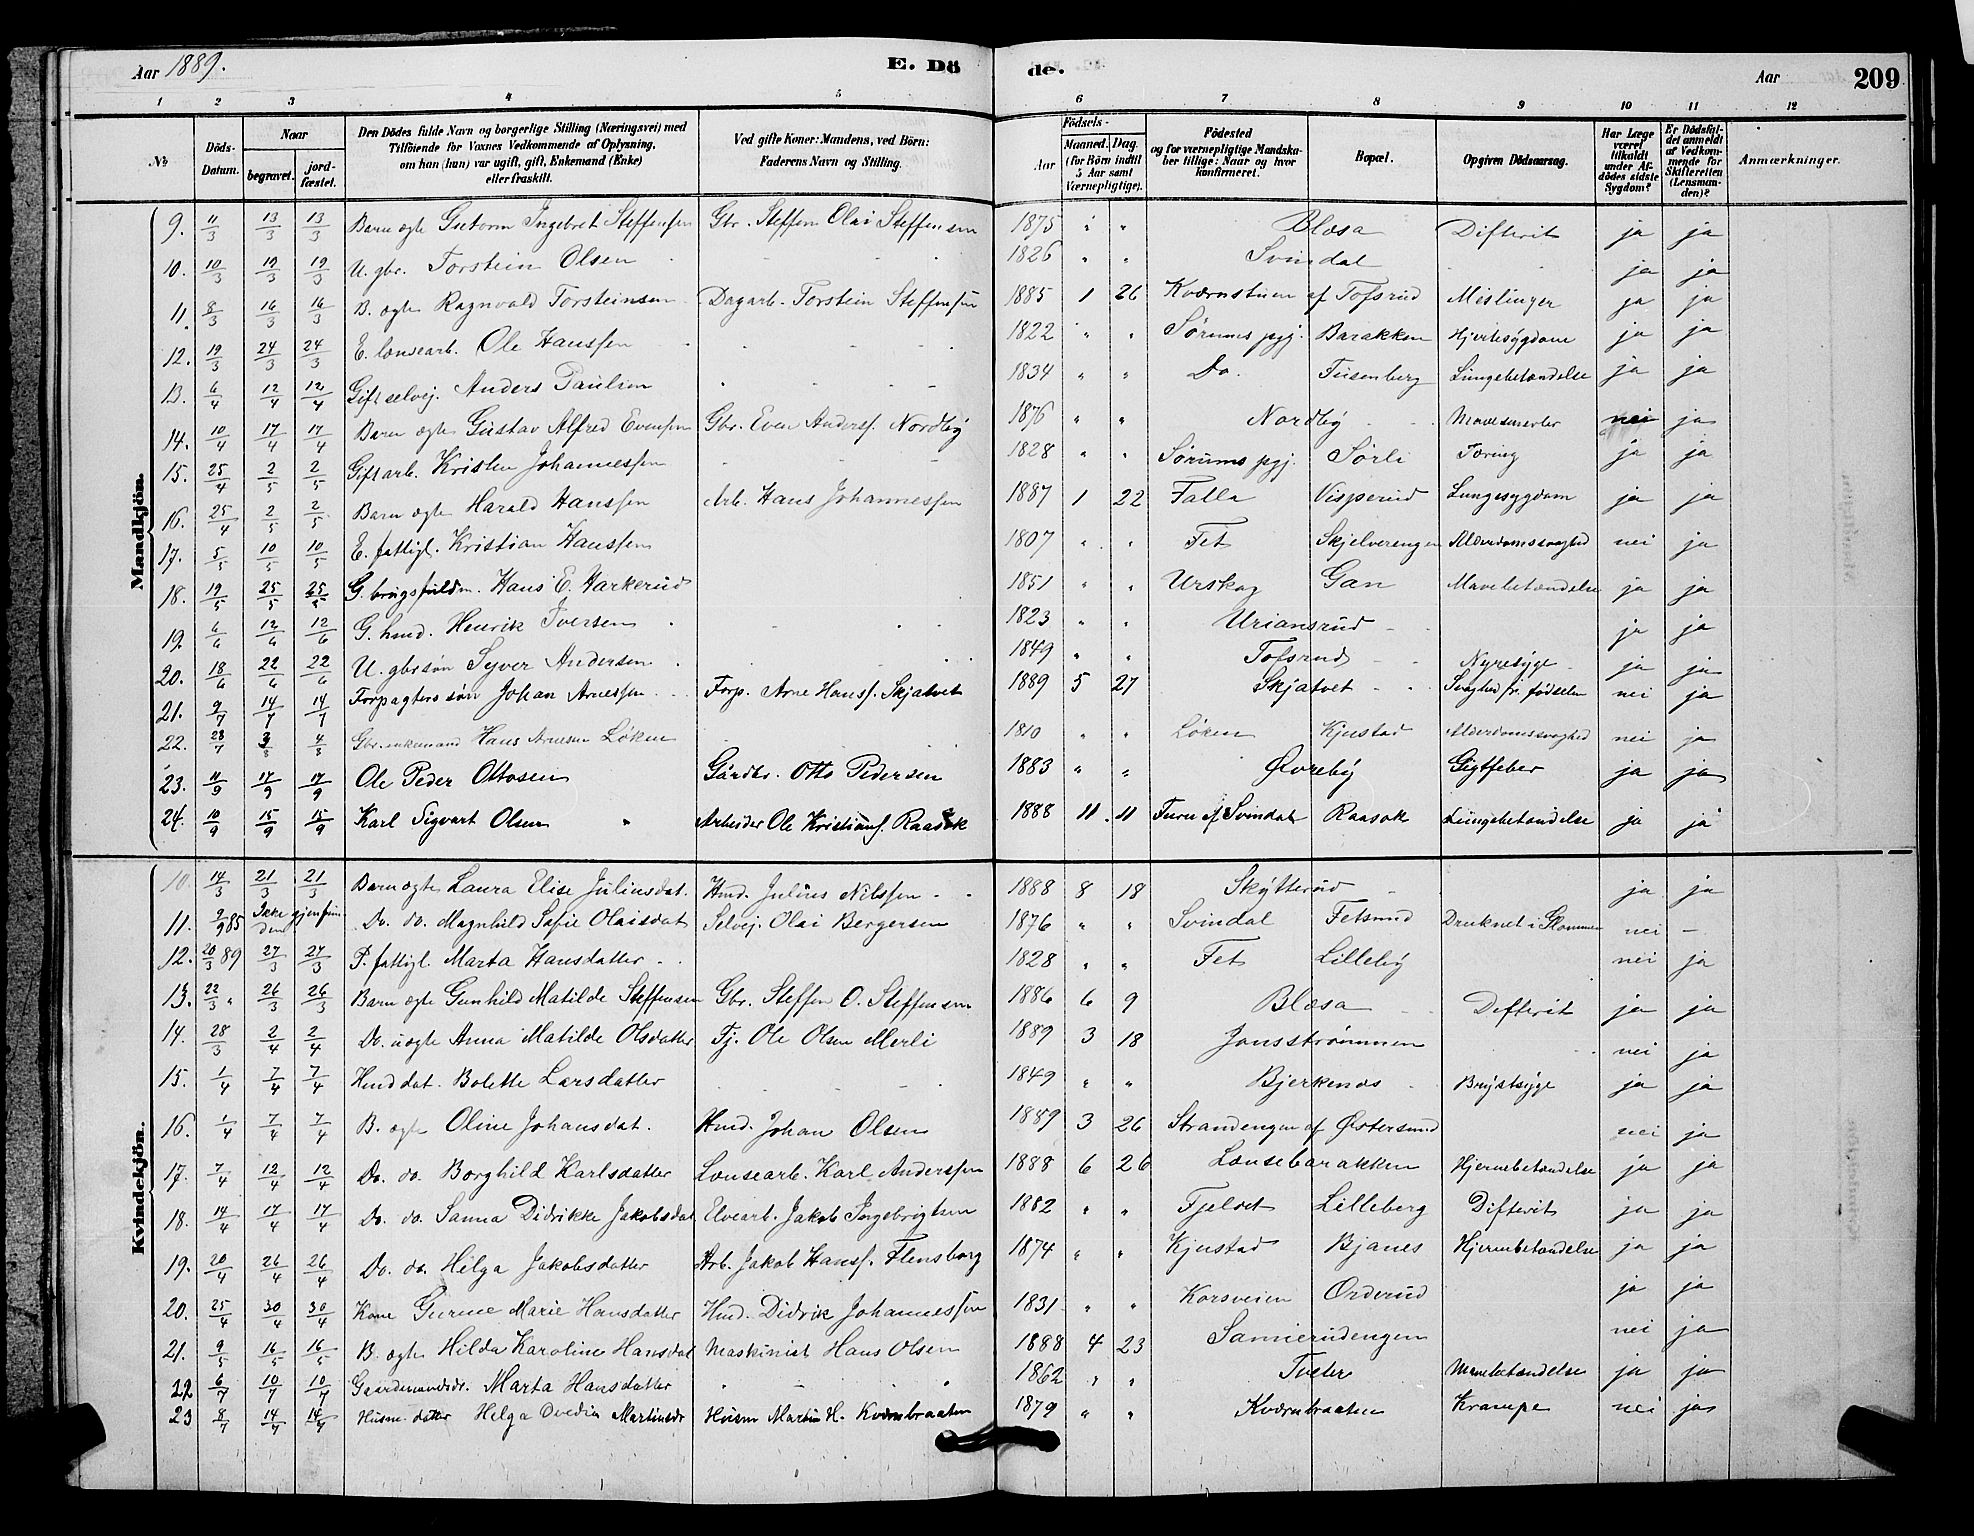 Aar 1889. E. Dö de. Aar 209
1 2 3 4 5 6 7 8 9 10 11 12
No. Döds-Datum. Naar begravet. jord-fæstet. Den Dödes fulde Navn og borgerlige Stilling (Næringsvei) med Tilföiende for Voxnes Vedkommende af Oplysning, om han (hun) var ugift, gift, Enkemand (Enke) eller fraskilt. Ved gifte Koner: Mandens, ved Börn: Faderens Navn og Stilling. Födsels- Aar Maaned. Dag. (for Börn indtil 5 Aar samt Værnepligtige). Födested og for værnepligtige Mandskaber tillige: Naar og hvor konfirmeret. Bopæl. Opgiven Dödsaarsag. Har Læge været tilkaldt under Afdödes sidste Sygdom? Er Dödsfaldet anmeldt af Vedkommende for Skifteretten (Lensmanden)? Anmærkninger.
Mandkjön.
9. 11/3 13/3 13/3 Barn ægte Gutorm Ingebret Steffensen Gbr. Steffen Olai Steffensen 1875 " " Blæsa Difterit ja ja
10. 10/3 19/3 19/3 U. gbr. Torstein Olsen 1826 " " Svindal ja ja
11. 8/3 16/3 16/3 B. ægte Ragnvald Torsteinsen Dagarb. Torstein Steffensen 1885 1 26 Kværnstuen af Tofsrud Meslinger ja ja
12. 19/3 24/3 24/3 E. lensearb. Ole Hanssen 1822 " " Sørums pgj. Barakken Hjertesygdom ja ja
13. 6/4 12/4 12/4 Gift selvej. Anders Paulsen 1834 " " Do. Fusenberg Lungebetændelse ja ja
14. 10/4 17/4 17/4 Barn ægte Gustav Alfred Evensen Gbr. Even Anderss. Nordby 1876 " " Nordby Mavesmerter nei ja
15. 25/4 2/5 2/5 Gift arb. Kristen Johannessen 1828 " " Sørums pgj. Sørli Tæring ja ja
16. 25/4 2/5 2/5 Barn ægte Harald Hanssen Arb. Hans Johannessen 1887 1 22 Falla Visperud Lungesygdom ja ja
17. 5/5 10/5 10/5 E. fattigl. Kristian Hanssen 1807 " " Fet Skjelverengen Alderdomssvaghed nei ja
18. 19/5 25/5 25/5 G. brugsfuldm. Hans E. Harkerud 1851 " " Urskog Gan Mavebetændelse ja ja
19. 6/6 12/6 12/6 G. hmd. Henrik Iversen 1823 " " Uriansrud ja ja
20. 18/6 22/6 22/6 U. gbrsøn Syver Andersen 1849 " " Tofsrud Nyresyge ja ja
21. 9/7 14/7 14/7 Forpagters søn Johan Arnessen Forp. Arne Hanss. Skjatvet 1889 5 27 Skjatvet Svaghed fr. fødselen nei ja
22. 28/7 3/8 4/8 Gbr. enkemand Hans Arnesen Løken 1810 " " Løken Kjustad Alderdomssvaghed nei ja
23. 11/9 17/9 17/9 Ole Peder Ottosen Gårdbr. Otto Pedersen 1883 " " Øvreby Gigtfeber ja ja
24. 10/9 15/9 15/9 Karl Sigvart Olsen Arbeider Ole Kristians. Raasok 1888 11 11 Furu af Svindal Raasok Lungebetændelse ja ja
Kvindekjön.
10. 14/3 21/3 21/3 Barn ægte Laura Elise Juliusdat. Hmd. Julius Nilssen 1888 8 18 Skytterud ja ja
11. 9/9 85 Ikke gjenfunden Do. do. Magnhild Sofie Olaisdat Selvej. Olai Bergersen 1876 " " Svindal Fetsund Druknet i Glommen nei –
12. 20/3 89 27/3 27/3 P. fattigl. Marta Hansdatter 1828 " " Fet Lilleby nei ja
13. 22/3 " 26/3 26/3 Barn ægte Gunhild Matilde Steffensen Gbr. Steffen O. Steffensen 1886 6 9 Blæsa Difterit ja ja
14. 28/3 2/4 2/4 Do. uægte Anna Matilde Olsdatter Fj. Ole Olsen Merli 1889 3 18 Jonsstrømmen nei ja
15. 1/4 7/4 7/4 Hmd dat. Bolette Larsdatter 1849 " " Bjerkenæs Brystsyge ja ja
16. 1/4 7/4 7/4 B. ægte Oline Johansdat. Hmd. Johan Olsen 1889 3 26 Strandengen af Østersund nei ja
17. 7/4 12/4 12/4 Do. do. Borghild Karlsdatter Lensearb. Karl Anderssen 1888 6 26 Lensebarakken Hjernebetændelse ja ja
18. 14/4 17/4 17/4 Do. do. Sanna Didrikke Jakobsdat Elvearb. Jakob Ingebrigtsen 1882 " " Fjelset Lilleberg Difterit ja ja
19. 20/4 26/4 26/4 Do. do. Helga Jakobsdatter Arb. Jakob Hanss. Flensborg 1874 " " Kjustad Bjanes Hjernebetændelse ja ja
20. 25/4 30/4 30/4 Kone Gurine Marie Hansdatter Hmd. Didrik Johannessen 1831 " " Korsveien Orderud ja ja
21. 9/5 16/5 16/5 B. ægte Hilda Karoline Hansdat Maskinist Hans Olsen 1888 4 23 Sannerudengen nei ja
22 6/7 10/7 10/7 Gaardmandsdr. Marta Hansdatter 1862 " " Tueter Mavebetændelse ja ja
23 8/7 14/7 14/7 Husm. datter Helga Ovedia Martinsdr Husm Martin H. Kværnbraaten 1879 " " Kværnbraaten Krampe nei ja